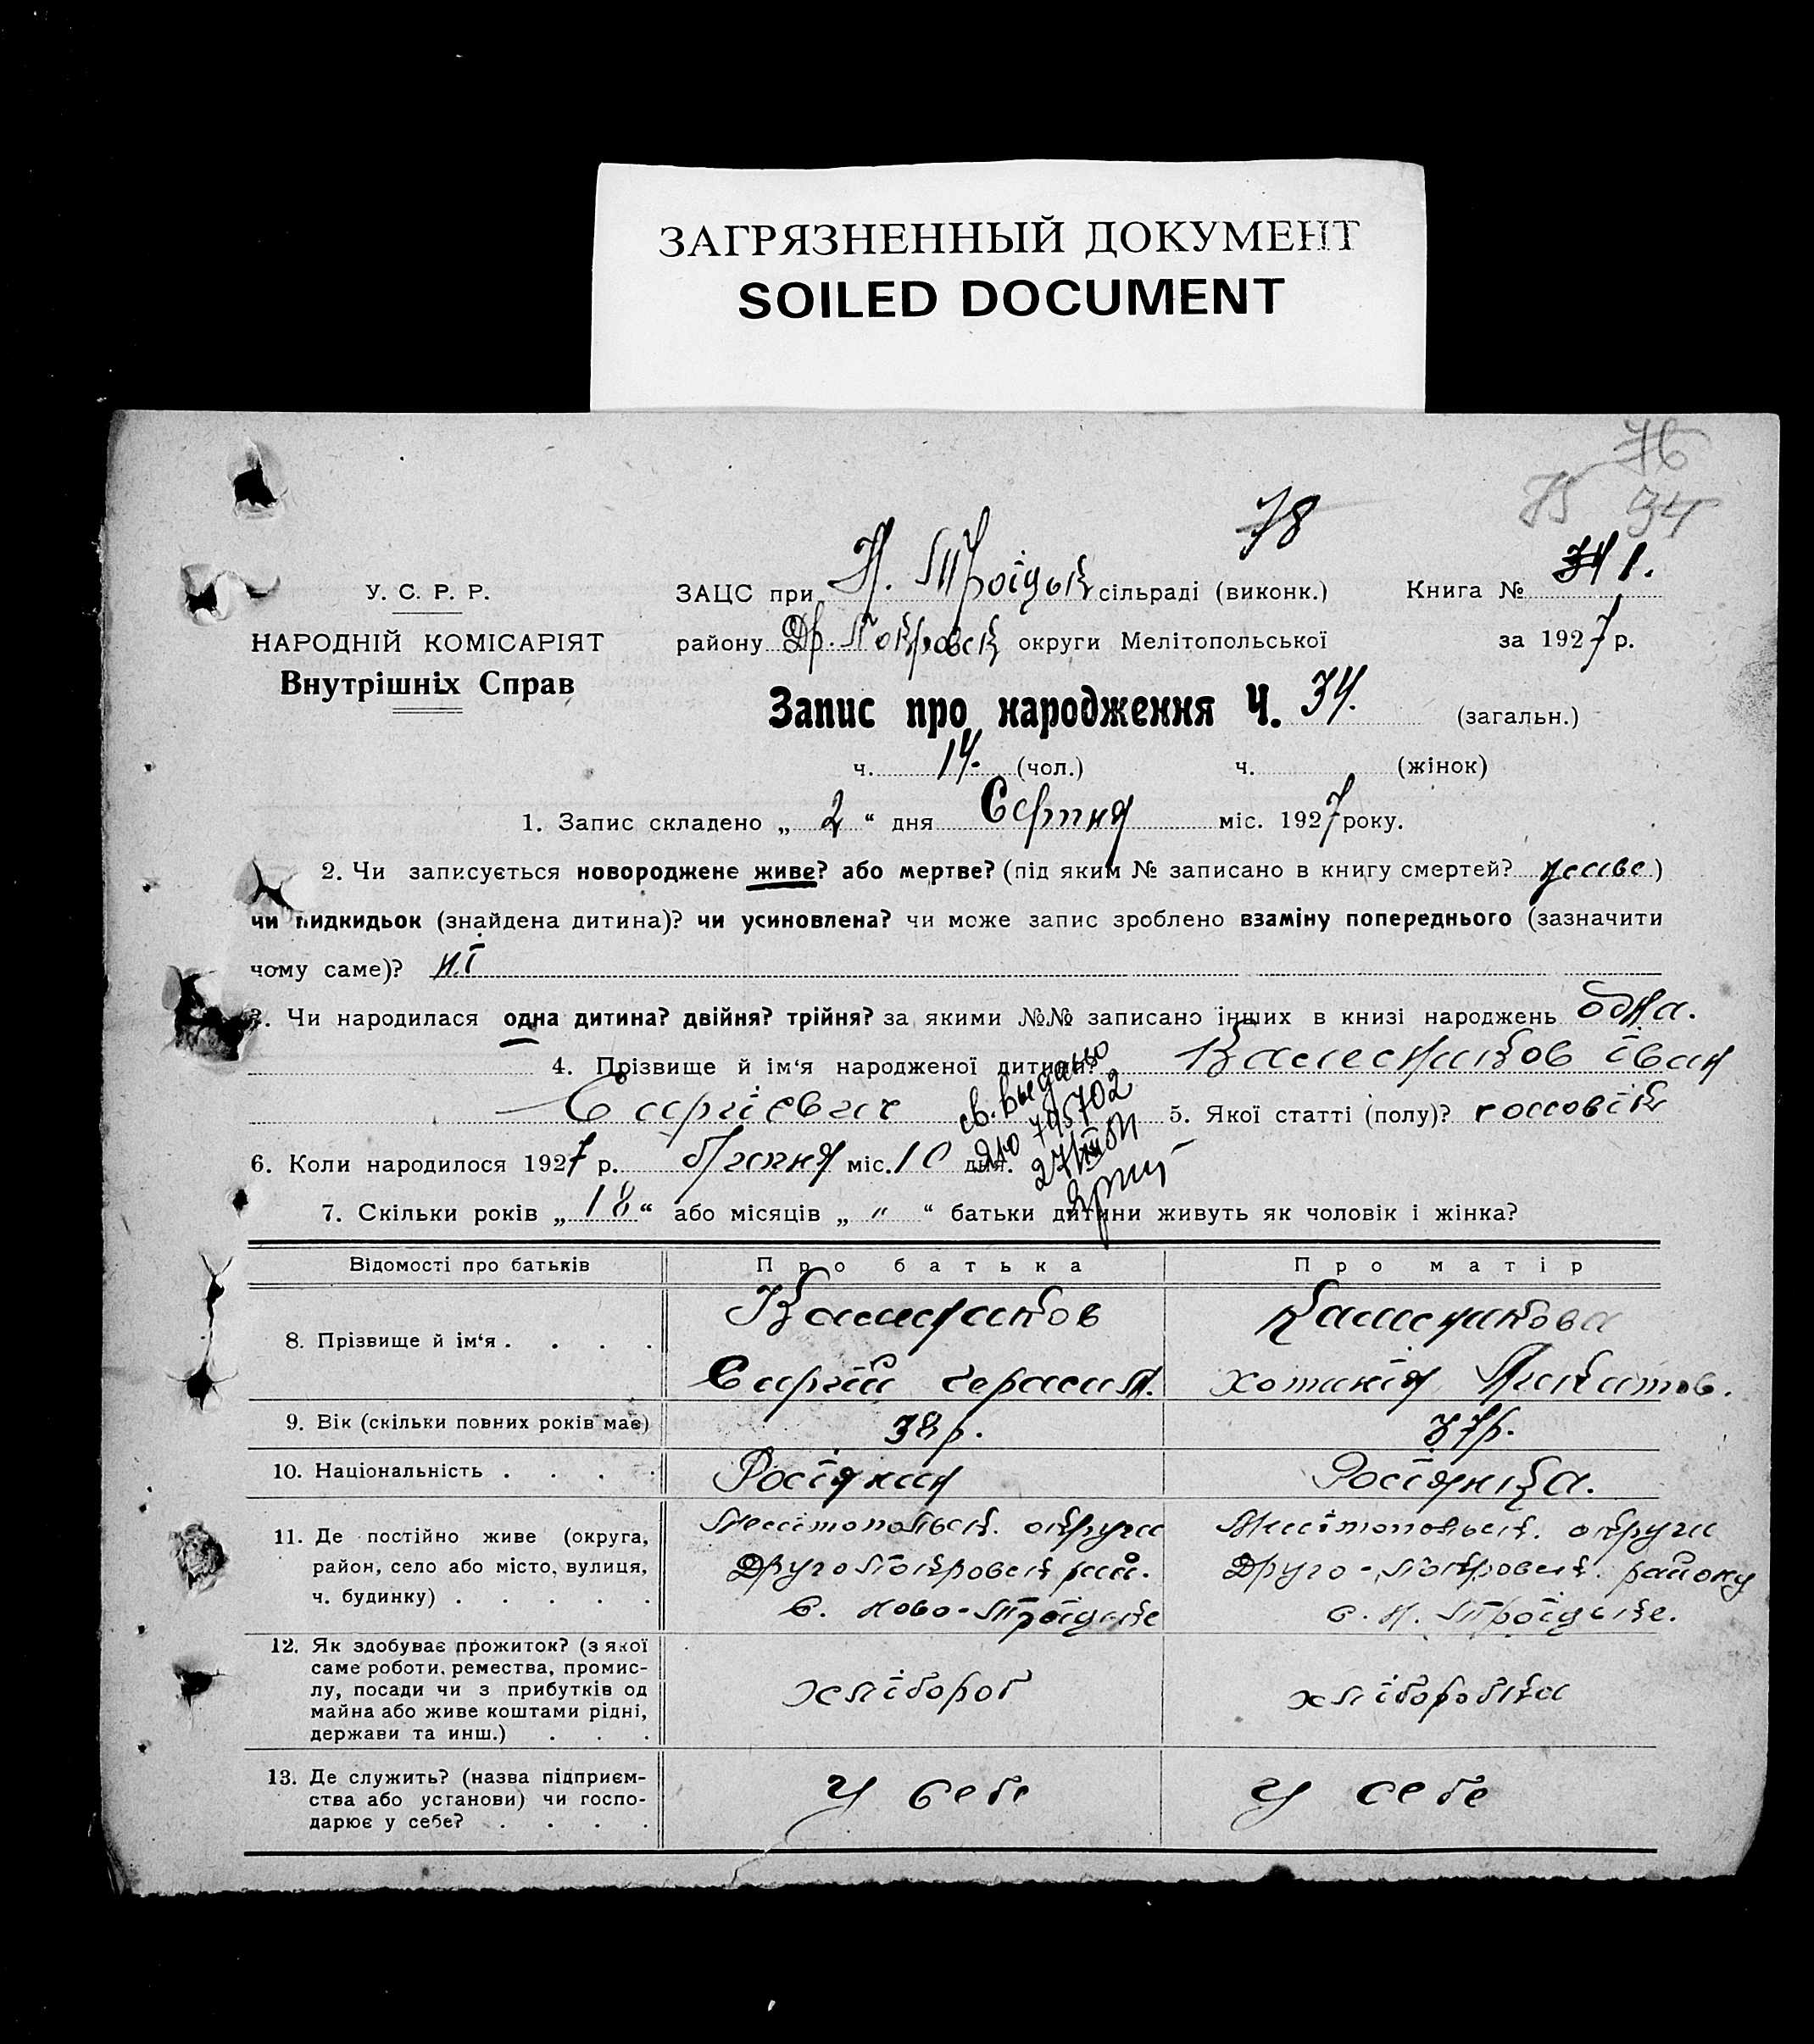 ЗАГРЯЗНЕННЫЙ ДОКУМЕНТ
SOILED DOCUMENT
76
75 94
78
У. С. Р. Р.
НАРОДНІЙ КОМІСАРІЯТ
Внутрішніх Справ
ЗАЦС при Н. Троїцьк сільраді (виконк.) Книга № 1.
району Др. Покровськ округи Мелітопольської за 1927 р.
Запис про народження Ч. 34. (загальн.)
ч. 14. (чол.) ч. (жінок)
1. Запис складено „ 2 “ дня Серпня міс. 1927 року.
2. Чи записується новороджене живе? або мертве? (під яким № записано в книгу смертей? живе )
чи підкидьок (знайдена дитина)? чи усиновлена? чи може запис зроблено взаміну попереднього (зазначити
чому саме)? ні
3. Чи народилася одна дитина? двійня? трійня? за якими №№ записано інших в книзі народжень одна.
4. Прізвище й ім‘я народженої дитини? Іван
Сергієвич 5. Якої статті (полу)?
6. Коли народилося 1927 р. Липня міс. 10 дня.
св. выдано
795702
7. Скільки років „ 18 “ або місяців „ " “ батьки дитини живуть як чоловік і жінка?
Відомості про батьків Про батька Про матір
8. Прізвище й ім‘я
Сергій Герасим.
9. Вік (скільки повних років має) 38 р. 37 р.
10. Національність Росіянин Росіянка.
11. Де постійно живе (округа, Мелітопольськ. округи Мелітопольськ. округи
район, село або місто, вулиця, Друго Покровськ рай. Друго-Покровськ. району
ч. будинку) с. Ново-Троїцьке с. Н. Троїцьке.
12. Як здобуває прожиток? (з якої
саме роботи, ремества, промис-
лу, посади чи з прибутків од хлібороб хліборобка
майна або живе коштами рідні,
держави та инш.)
13. Де служить? (назва підприєм-
ства або установи) чи госпо- у себе у себе
дарює у себе?